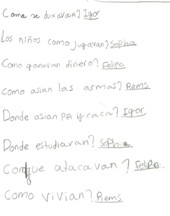 Como se duxavan? Igor
Los niños como jugavan? Sopha
Como ganavan dinero? Felipe
Como asian las armas? Rems
Donde asian PA y caca? Igor
Donde estudiavan? SoPha
Con que atacavan? FeliPe
Como vivian? Rems